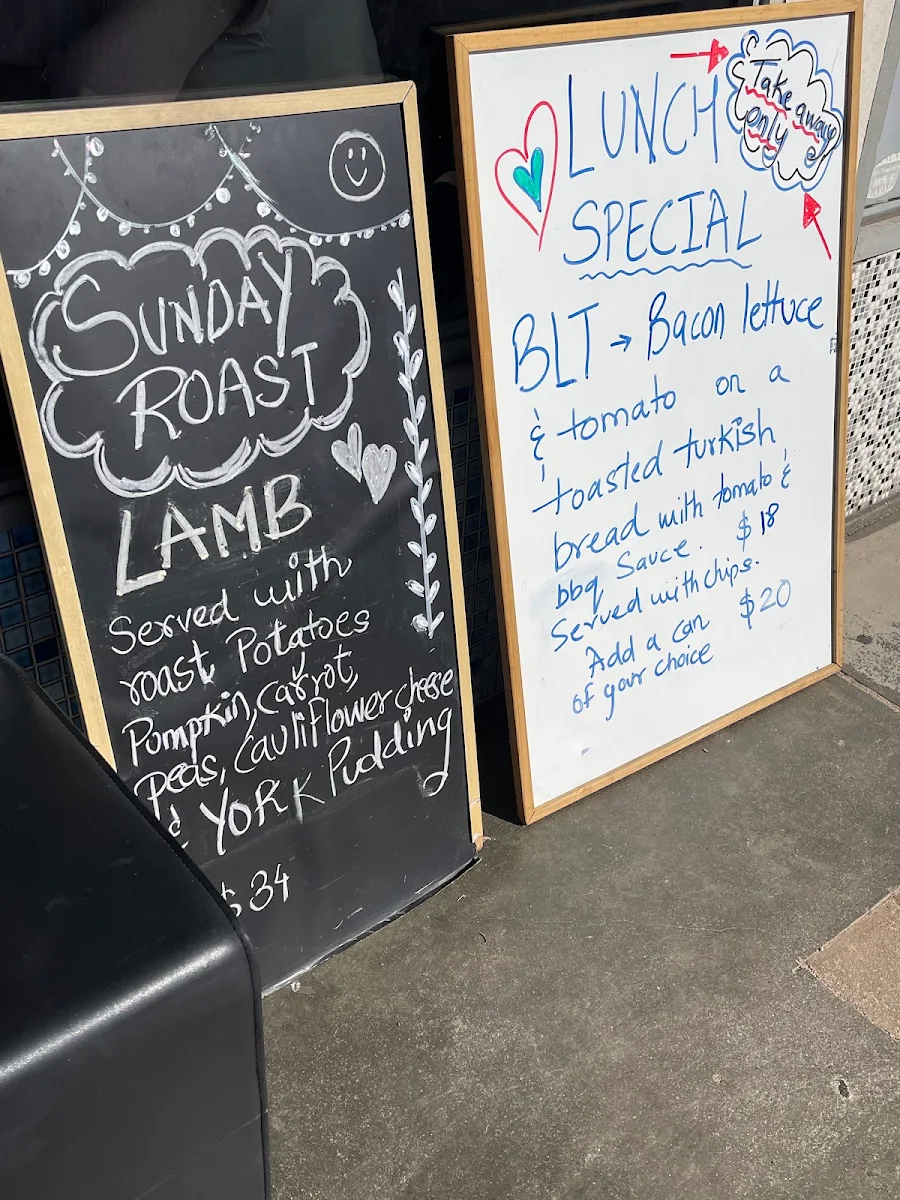 SUNDAY
ROAST
LAMB
Served with
roast Potatoes
Pumpkin, carrot,
peas, cauliflower cheese
& YORK Pudding
$34
Take away
only
LUNCH
SPECIAL
BLT → Bacon lettuce
& tomato on a
toasted turkish
bread with tomato &
bbq Sauce. $18
Served with chips.
Add a can $20
of your choice